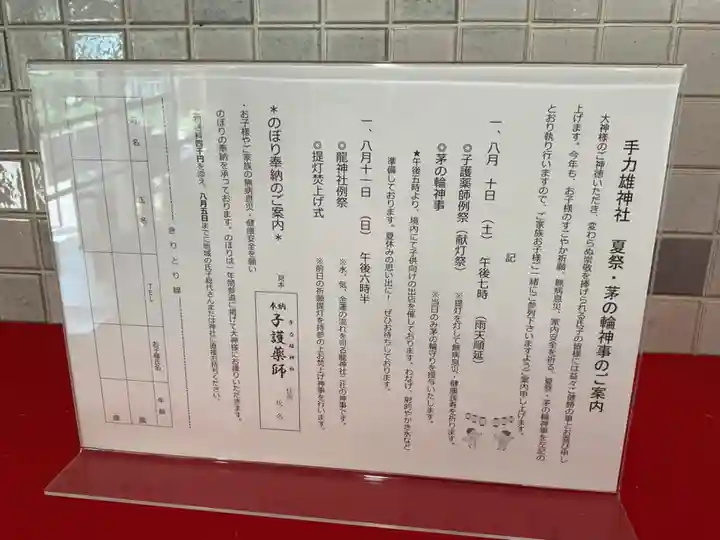 手力雄神社 夏祭・茅の輪神事のご案内
大神様のご神徳いただき、変わらぬ崇敬を捧げられる氏子の皆様には益々ご健勝の事とお喜び申し
上げます。今年も、お子様のすこやか祈願、無病息災、家内安全を祈る、夏祭・茅の輪神事を左記の
とおり執り行いますので、ご家族お子様ご一緒にご参列下さいますようご案内申し上げます。
記
一、八月 十日 （土） 午後七時 （雨天順延）
◎子護薬師例祭（献灯祭） ※提灯を灯して無病息災・健康長寿を祈ります。
◎茅の輪神事 ※当日のみ茅の輪守りを授与いたします。
★午後五時より、境内にて子供向けの出店を催しております。わなげ、射的やかき氷など
準備しております。夏休みの思い出に！ ぜひお待ちしております。
一、八月十一日 （日） 午後六時半
◎龍神社例祭 ※水、気、金運の流れを司る龍神社ご社の神事です。
◎提灯焚上げ式 ※前日の祈願提灯を持参の上お焚上げ神事を行います。
＊のぼり奉納のご案内＊
・お子様やご家族の無病息災・健康安全を願い
のぼりの奉納を承っております。のぼりは一年間参道に掲げて大神様にお護りいただきます。
料四千円を添え、八月五日までに地域の氏子総代さんまたは神社に直接お持ちください。
見本
奉納
手力雄神社
子護薬師
住所
氏名
きりとり線
氏名
TEL
お子様氏名
年齢
歳
歳